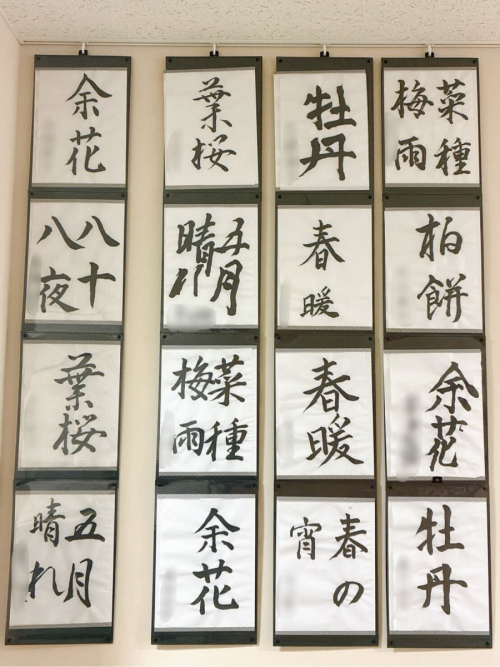 菜種
梅雨
柏
餅
余
花
牡
丹
牡
丹
春
暖
春
暖
春の
宵
葉
桜
五月
晴れ
菜種
梅雨
余
花
余
花
八十
八夜
葉
桜
五月
晴れ